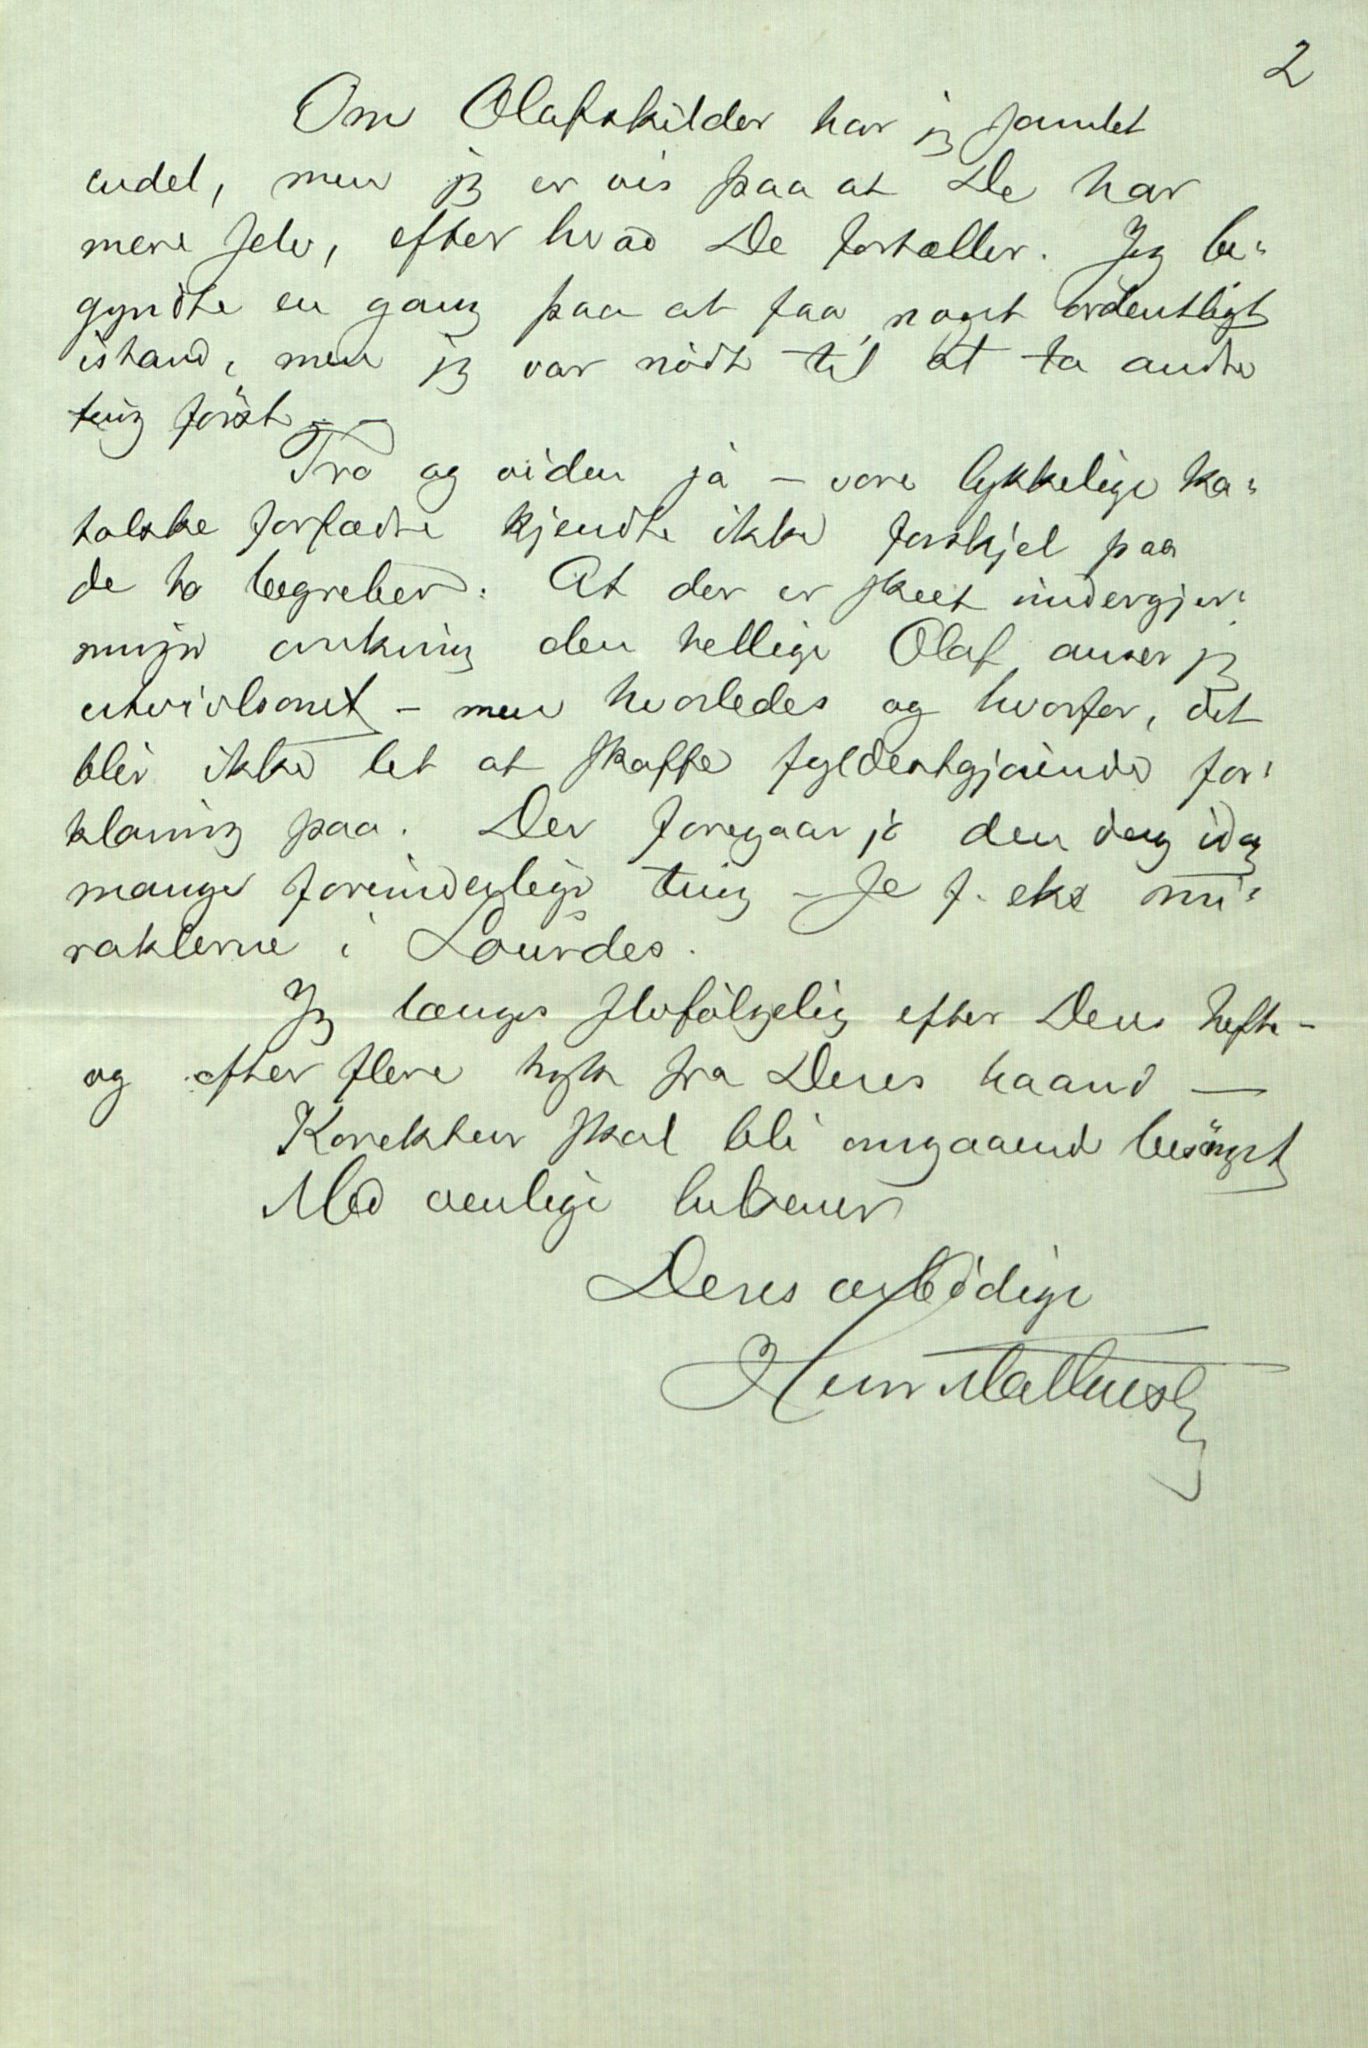 2
Om Olafskilder har jeg samlet
endel, men jeg er vis paa at De har
mere selv, efter hvad De fortæller. Jeg be-
gyndte en gang paa at faa noget ordentligt
istand, men jeg var nödt til at ta andre
ting först. –
Tro og viden ja – vore lykkelige ka-
tolske forfædre kjendte ikke forskjel paa
de to begreber. At der er skeet undergjer-
ninger omkring den hellige Olaf anser jeg
utvivlsomt – men hvorledes og hvorfor, det
blir ikke let at skaffe fyldestgjörende for-
klaring paa. Der foregaar jo den dag idag
mange forunderlige ting – se f. eks mi-
raklerne i Lourdes.
Jeg længes selvfölgelig efter Deres hefte –
og efter flere trykk fra Deres haand —
Korrektur skal bli omgaaende besörget
Med venlige hilsener
Deres ærbödige